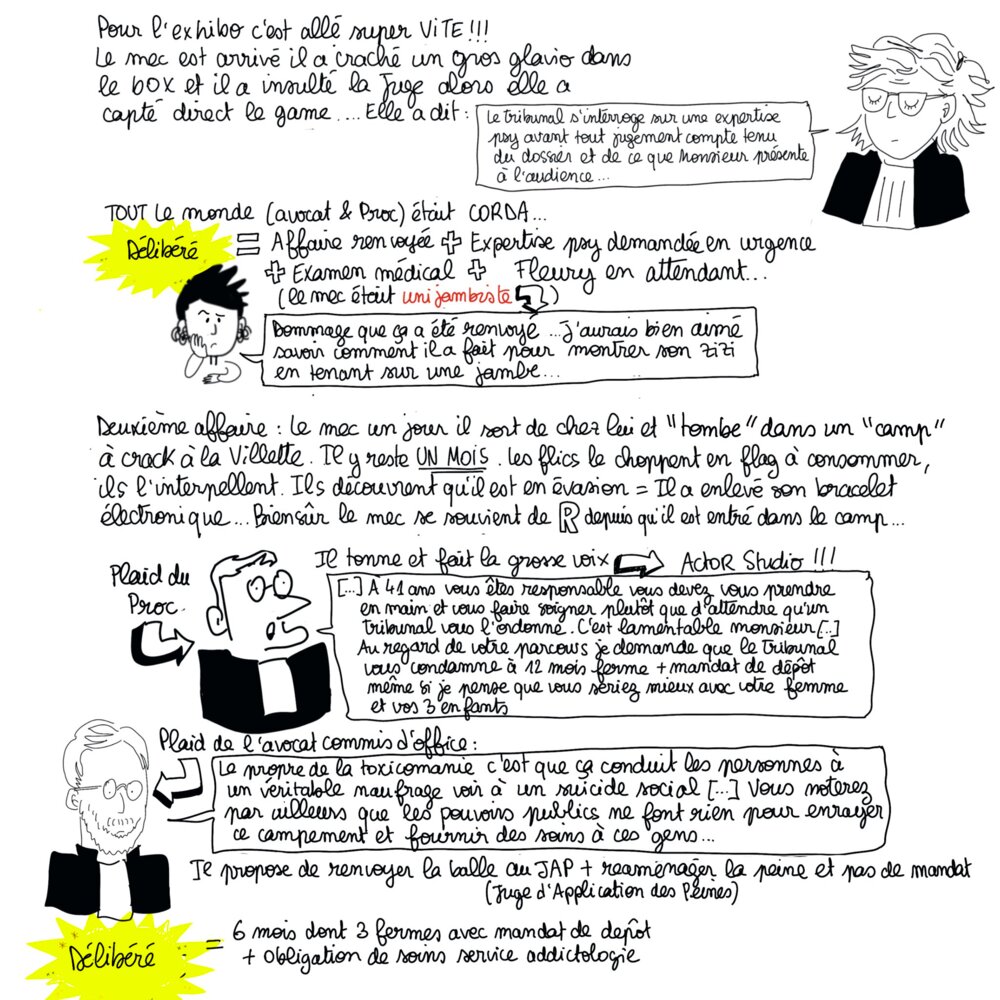 Pour l'exhibo c'est allé super ViTE !!!
Le mec est arrivé il a craché un gros glavio dans
le box et il a insulté la Juge alors elle a
capté direct le game.... Elle a dit :
Le tribunal s'interroge sur une expertise
psy avant tout jugement compte tenu
du dossier et de ce que Monsieur présente
à l'audience...
TOUT le monde (avocat & Proc) était CORDA...
Délibéré = Affaire renvoyée + Expertise psy demandée en urgence
+ Examen médical + Fleury en attendant...
(le mec était unijambiste)
Dommage que ça a été renvoyé ... j'aurais bien aimé
savoir comment il a fait pour montrer son zizi
en tenant sur une jambe...
Deuxième affaire : Le mec un jour il sort de chez lui et "tombe" dans un "camp"
à crack à la Villette. Il y reste UN MOIS. Les flics le choppent en flag à consommer,
ils l'interpellent. Ils découvrent qu'il est en évasion = Il a enlevé son bracelet
électronique... Biensûr le mec se souvient de R depuis qu'il est entré dans le camp...
Plaid du
Proc.
Il tonne et fait la grosse voix ActoR Studio !!!
[...] A 41 ans vous êtes responsable vous devez vous prendre
en main et vous faire soigner plutôt que d'attendre qu'un
Tribunal vous l'ordonne. C'est lamentable monsieur [...]
Au regard de votre parcours je demande que le Tribunal
vous condamne à 12 mois ferme + mandat de dépôt
même si je pense que vous seriez mieux avec votre femme
et vos 3 enfants
Plaid de l'avocat commis d'office :
Le propre de la toxicomanie c'est que ça conduit les personnes à
un véritable naufrage voir à un suicide social [...] Vous noterez
par ailleurs que les pouvoirs publics ne font rien pour enrayer
ce campement et fournir des soins à ces gens...
Je propose de renvoyer la balle au JAP + reaménager la peine et pas de mandat
(Juge d'Application des Peines)
Délibéré = 6 mois dont 3 fermes avec mandat de depôt
+ obligation de soins service addictologie